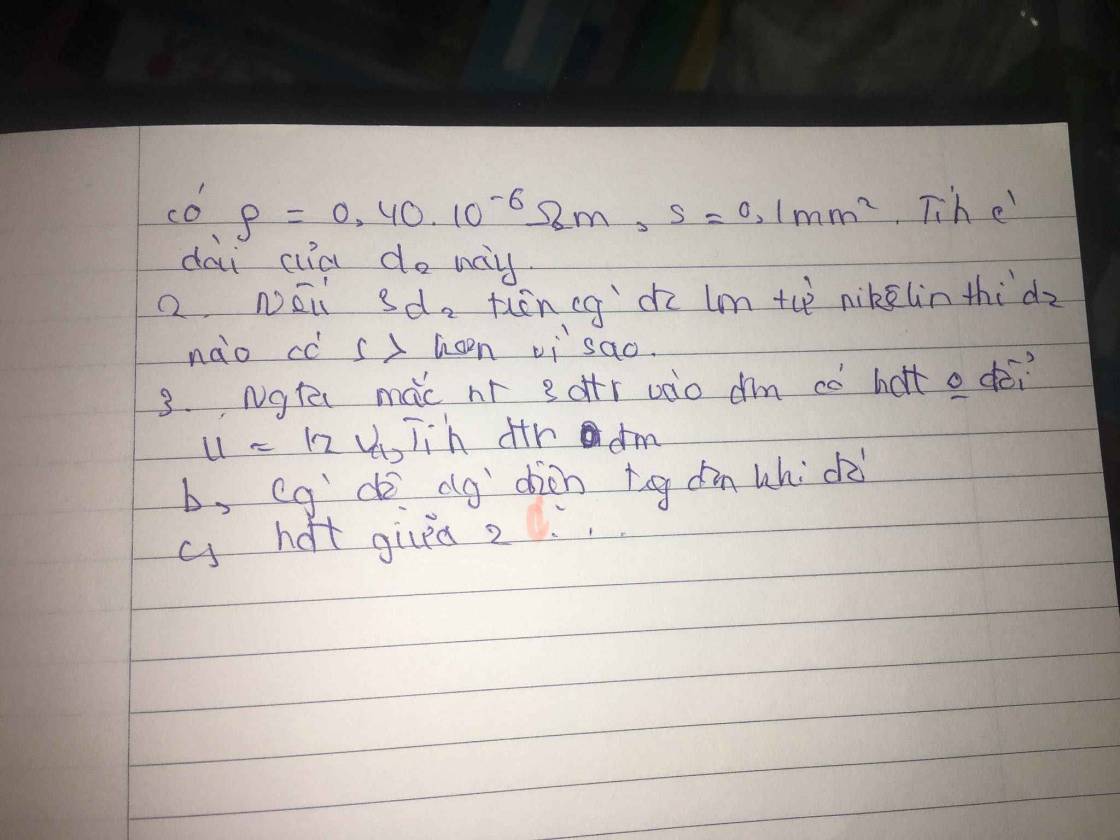 có ρ = 0,40.10⁻⁶ Ωm, s = 0,1mm². Tíh c`
dài của d₂ này.
2. Nếu 3d₂ trên cg` đc lm từ nikêlin thì d₂
nào có s > hơn vì sao.
3. Ngta mắc nt 3 đtr vào đm có hđt o đổi
U = 12 V a, Tíh đtr đm
b, cg` độ dg` điện tg đm khi đó
c, hđt giữa 2 đ...